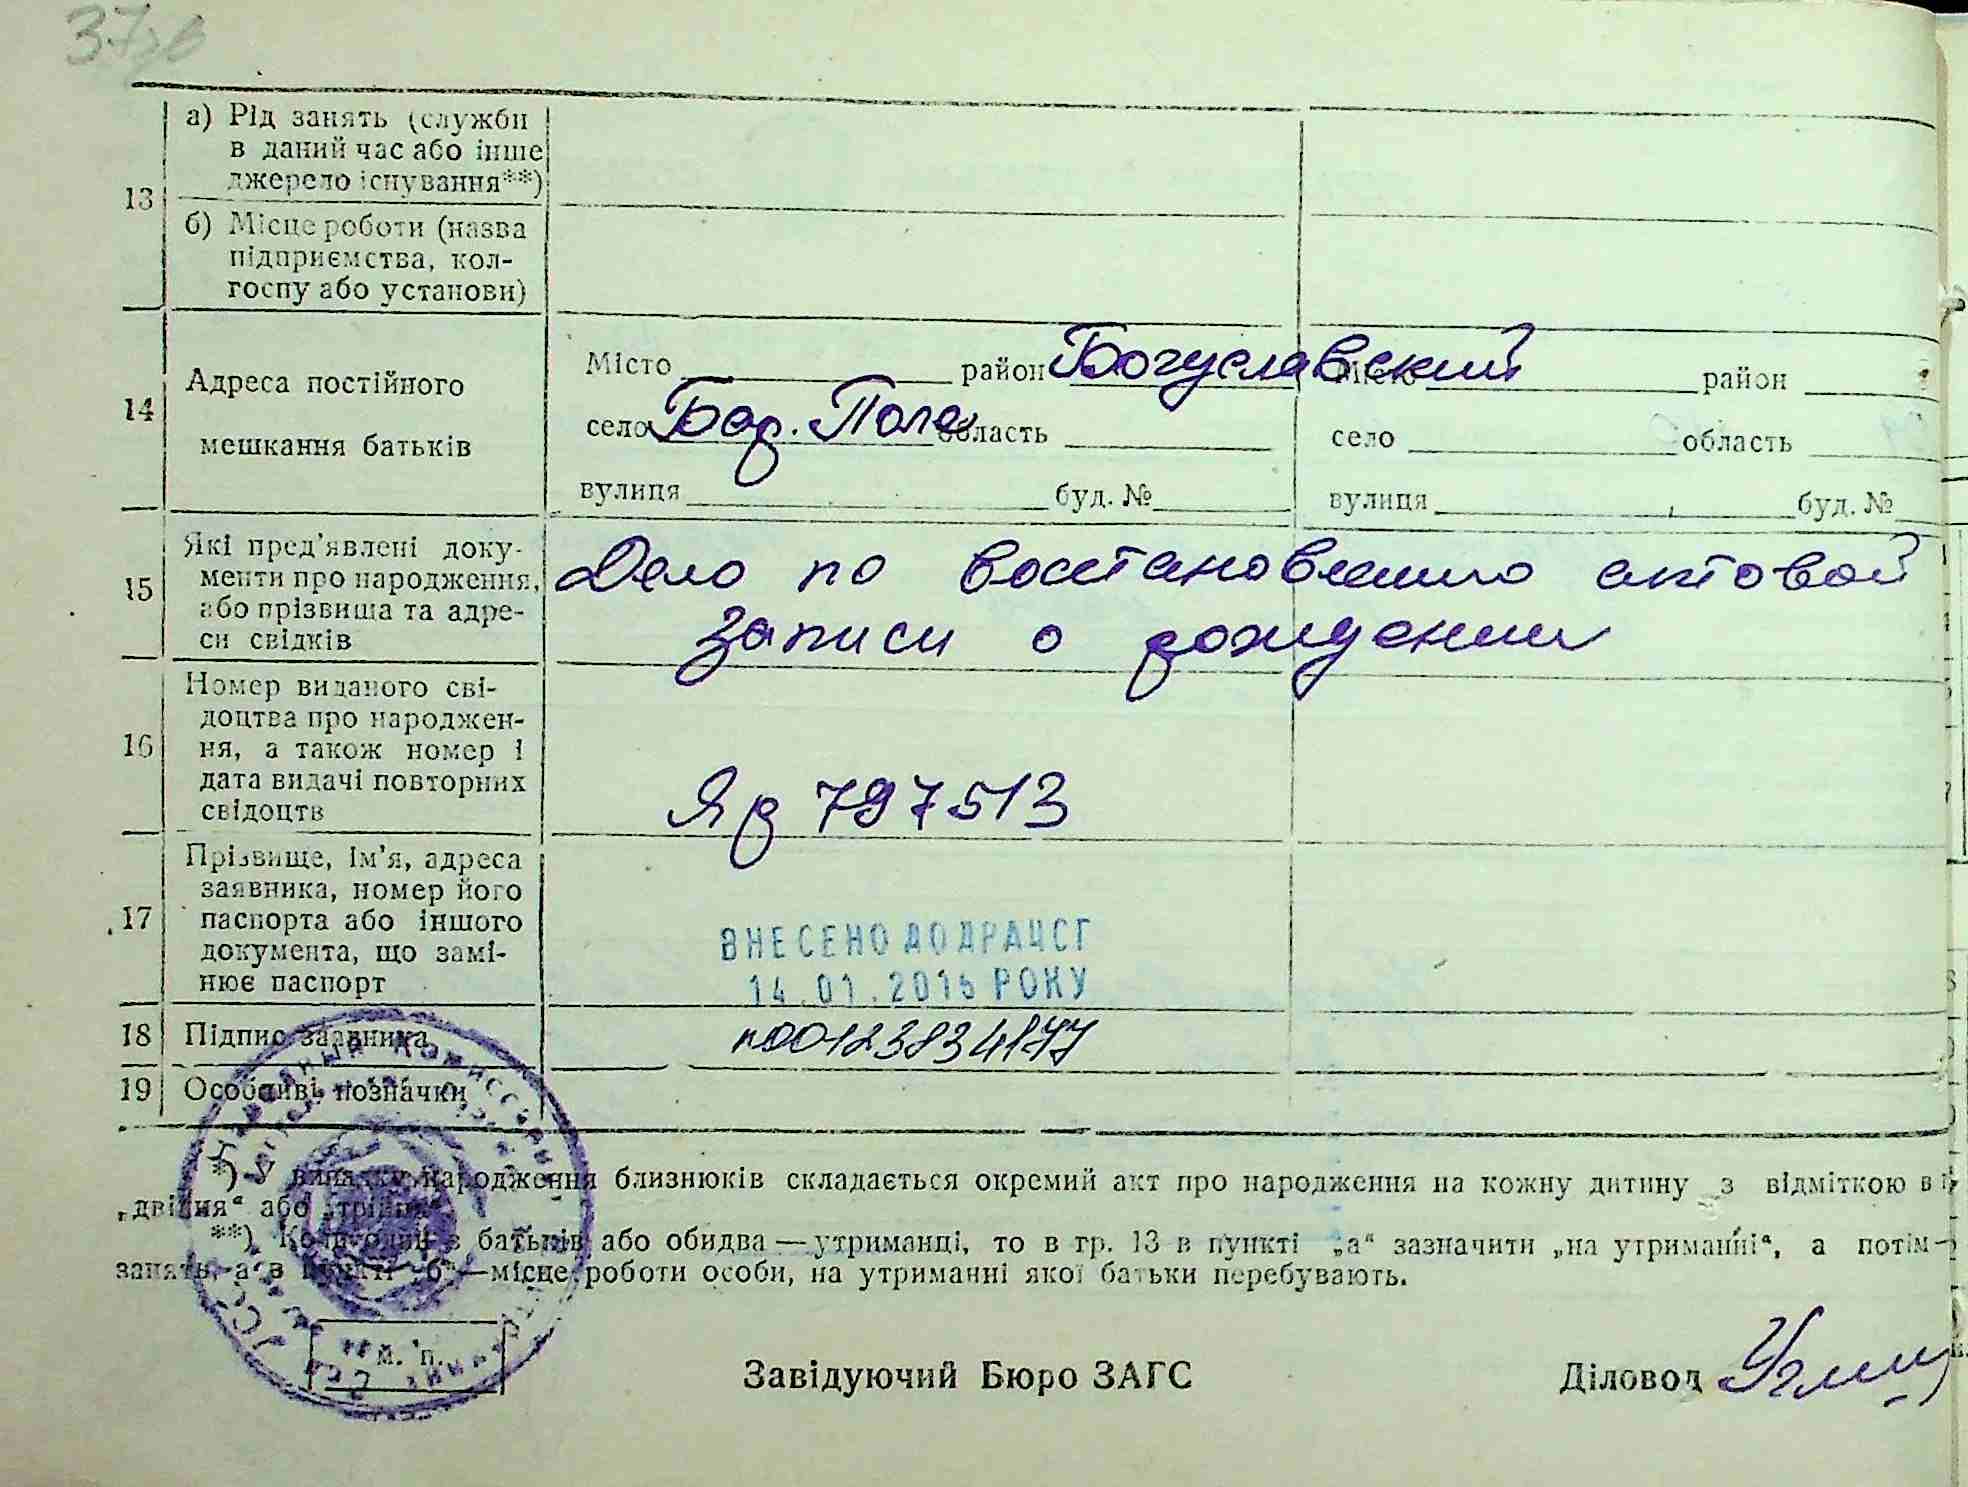 37зв
13
а) Рід занять (служби
в даний час або інше
джерело існування**)
б) Місце роботи (назва
підприємства, кол-
госпу або установи)
14
Адреса постійного
мешкання батьків
Місто район Богуславский
село Бар. Поле область
вулиця буд. №
Місто район
село область
вулиця буд. №
15
Які пред'явлені доку-
менти про народження,
або прізвища та адре-
си свідків
Дело по восстановлению актовой
записи о рождении
16
Номер виданого сві-
доцтва про народжен-
ня, а також номер і
дата видачі повторних
свідоцтв
Яр 797513
17
Прізвище, ім'я, адреса
заявника, номер його
паспорта або іншого
документа, що замі-
нює паспорт
ВНЕСЕНО ДО ДРАЦСГ
14.01.2015 РОКУ
18 Підпис заявника
19 Особливі позначки
*) У випадку народження близнюків складається окремий акт про народження на кожну дитину з відміткою в
„двійня“ або „трійня“.
**) Коли один з батьків або обидва — утриманці, то в гр. 13 в пункті „а“ зазначити „на утриманні“, а потім —
занять, а в пункті „б“ — місце роботи особи, на утриманні якої батьки перебувають.
м. п.
Завідуючий Бюро ЗАГС
Діловод